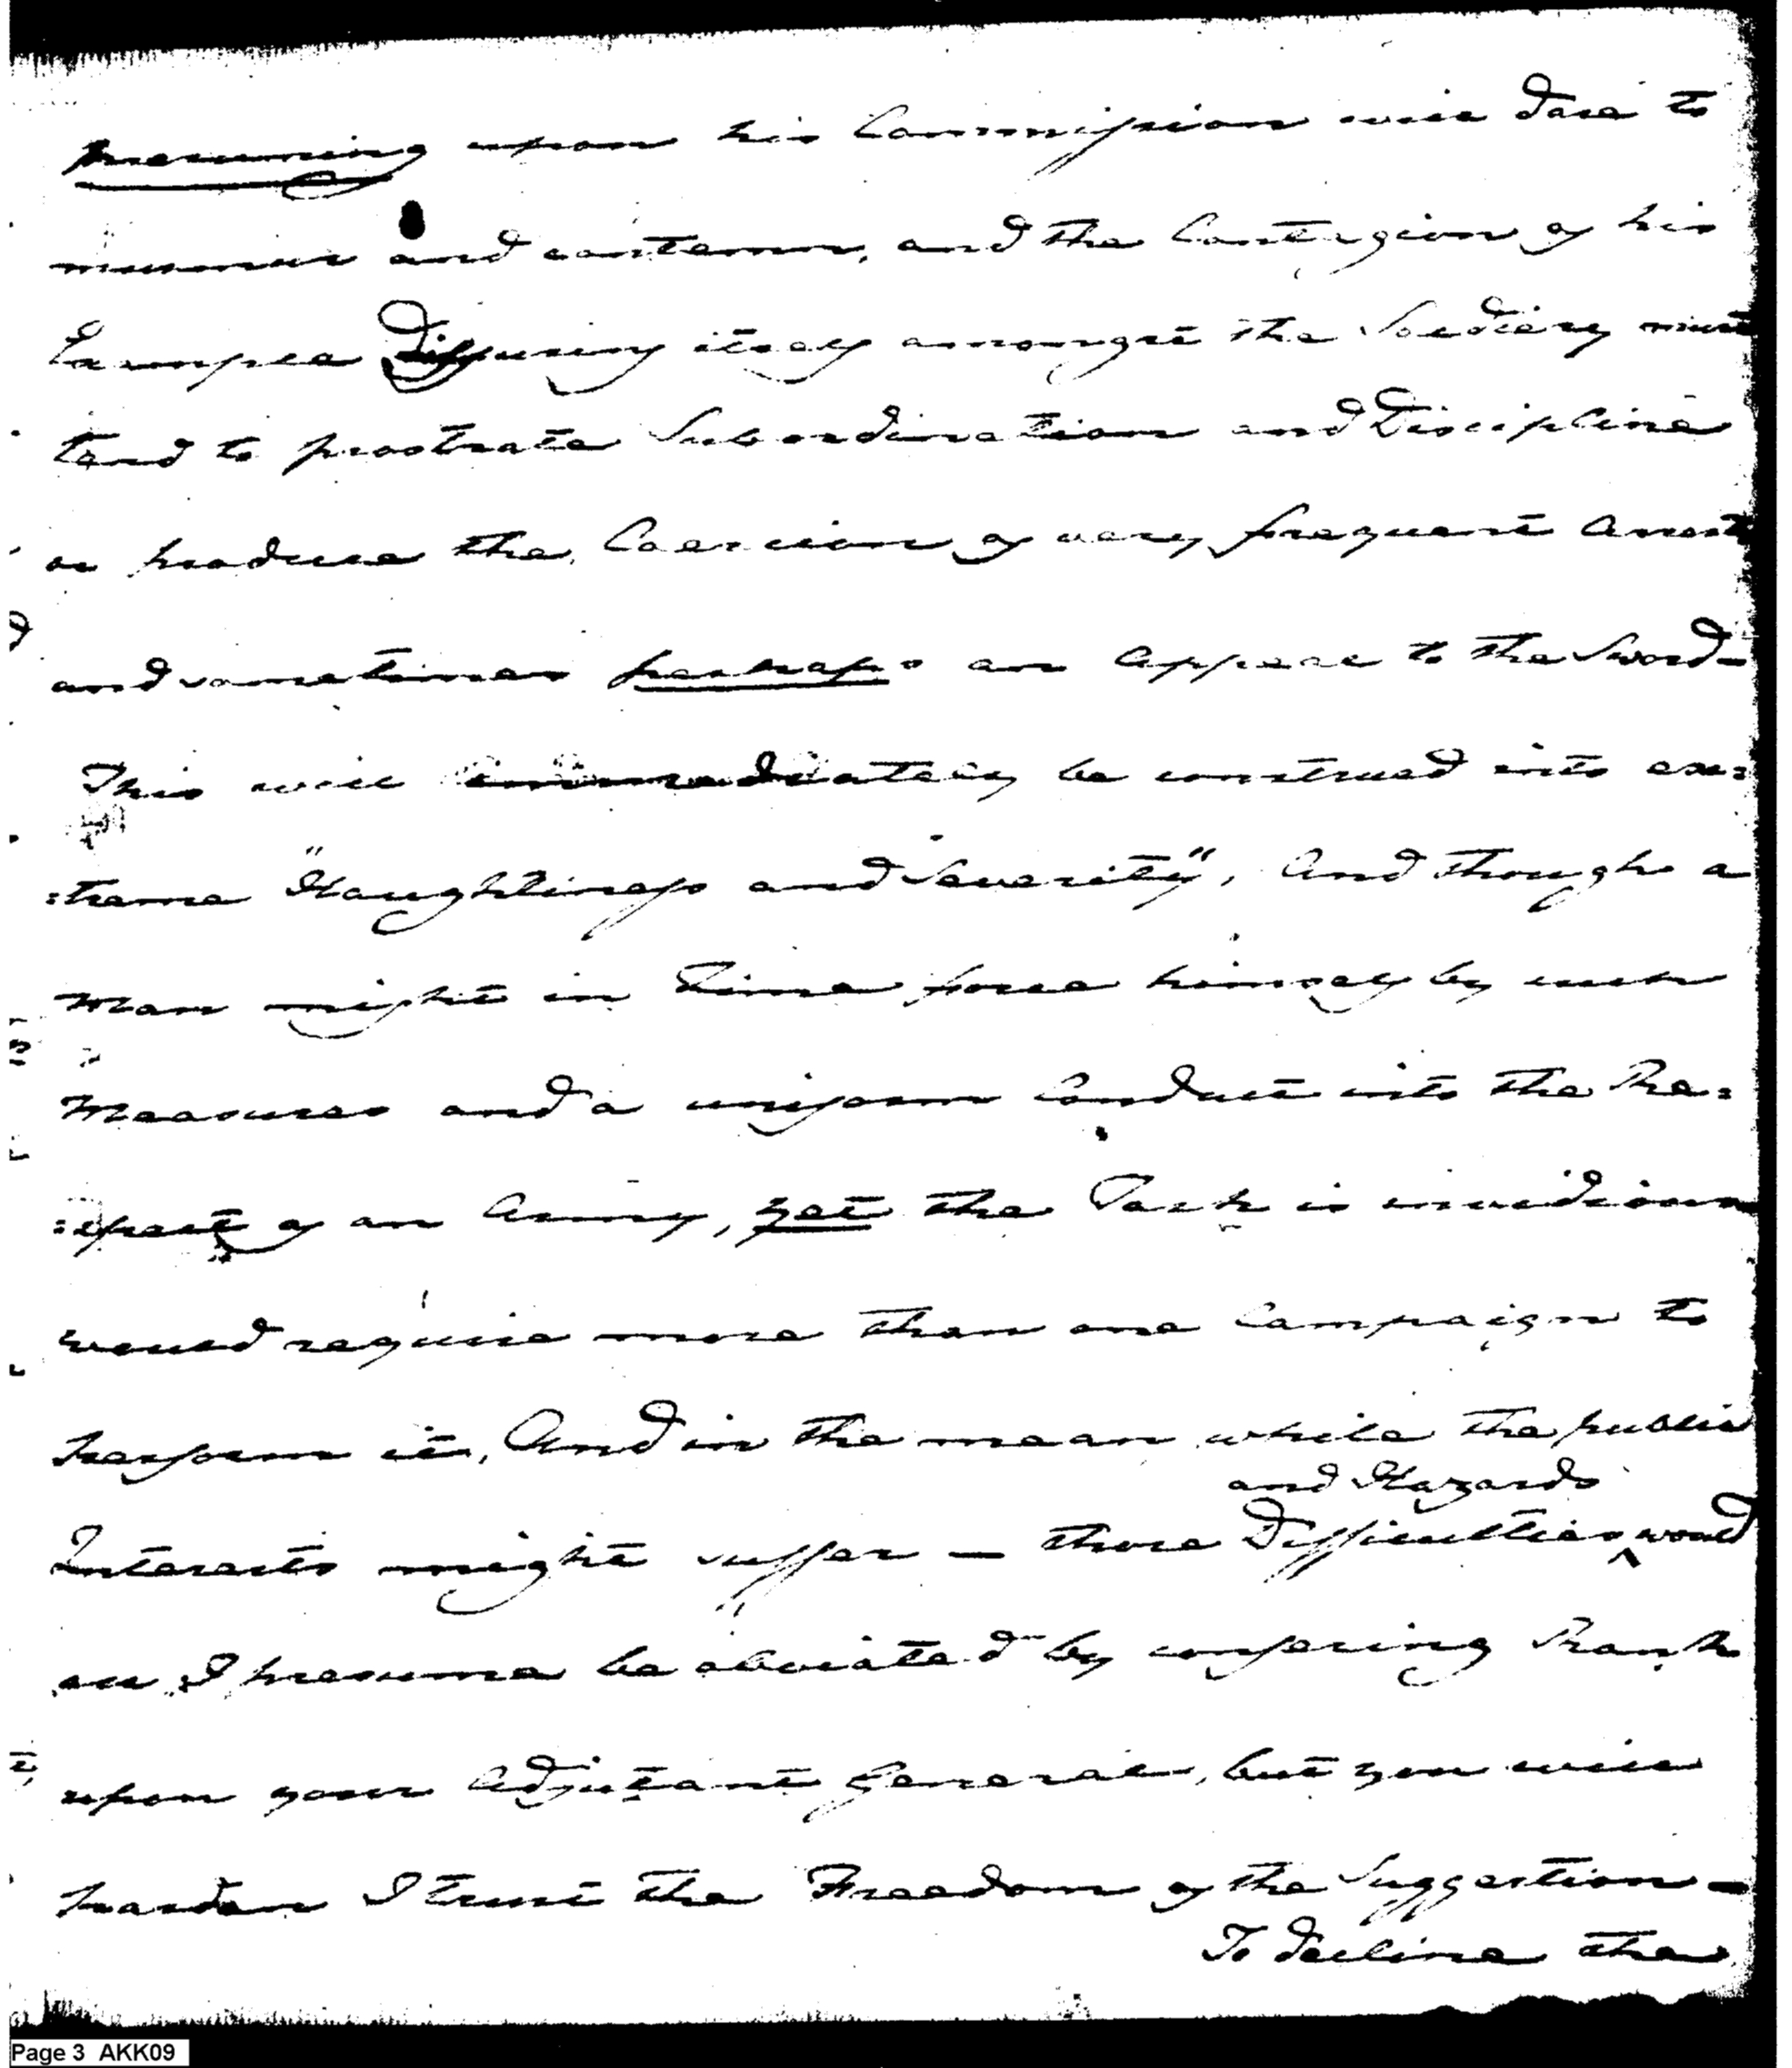 presuming upon his Commission will dare to
murmur and contemn, and the Contagion of his
Example Diffusing itself amongst the Soldiery must
tend to prostrate Subordination and Discipline
or produce the Coercion of very frequent Arrests
and sometimes perhaps an Appeal to the Sword –
This will immediately be construed into ex:
:treme "Haughtiness and Severity", And though a
Man might in Time force himself by such
Measures and a uniform Conduct into the Re:
:spect of an Army, yet the Task is invidious
would require more than one Campaign to
perform it, And in the mean while the public
and Hazards
Interests might suffer – those Difficulties ^ would
all I presume be obviated by confering Rank
upon your Adjutant General, but you will
pardon I trust the Freedom of the Suggestion –
To decline the
Page 3 AKK09